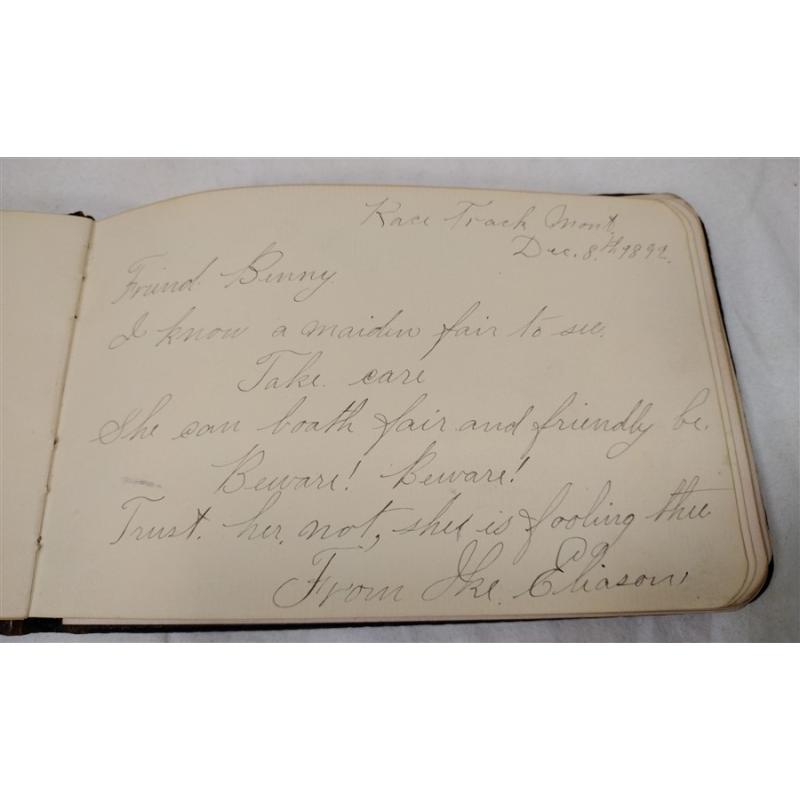 Race Track Mont.
Dec. 8.th 1892.
Friend Benny
I know a maiden fair to see.
Take care
She can boath fair and friendly be.
Beware! Beware!
Trust. her. not, shee is fooling thee
From Ike. Eliason,